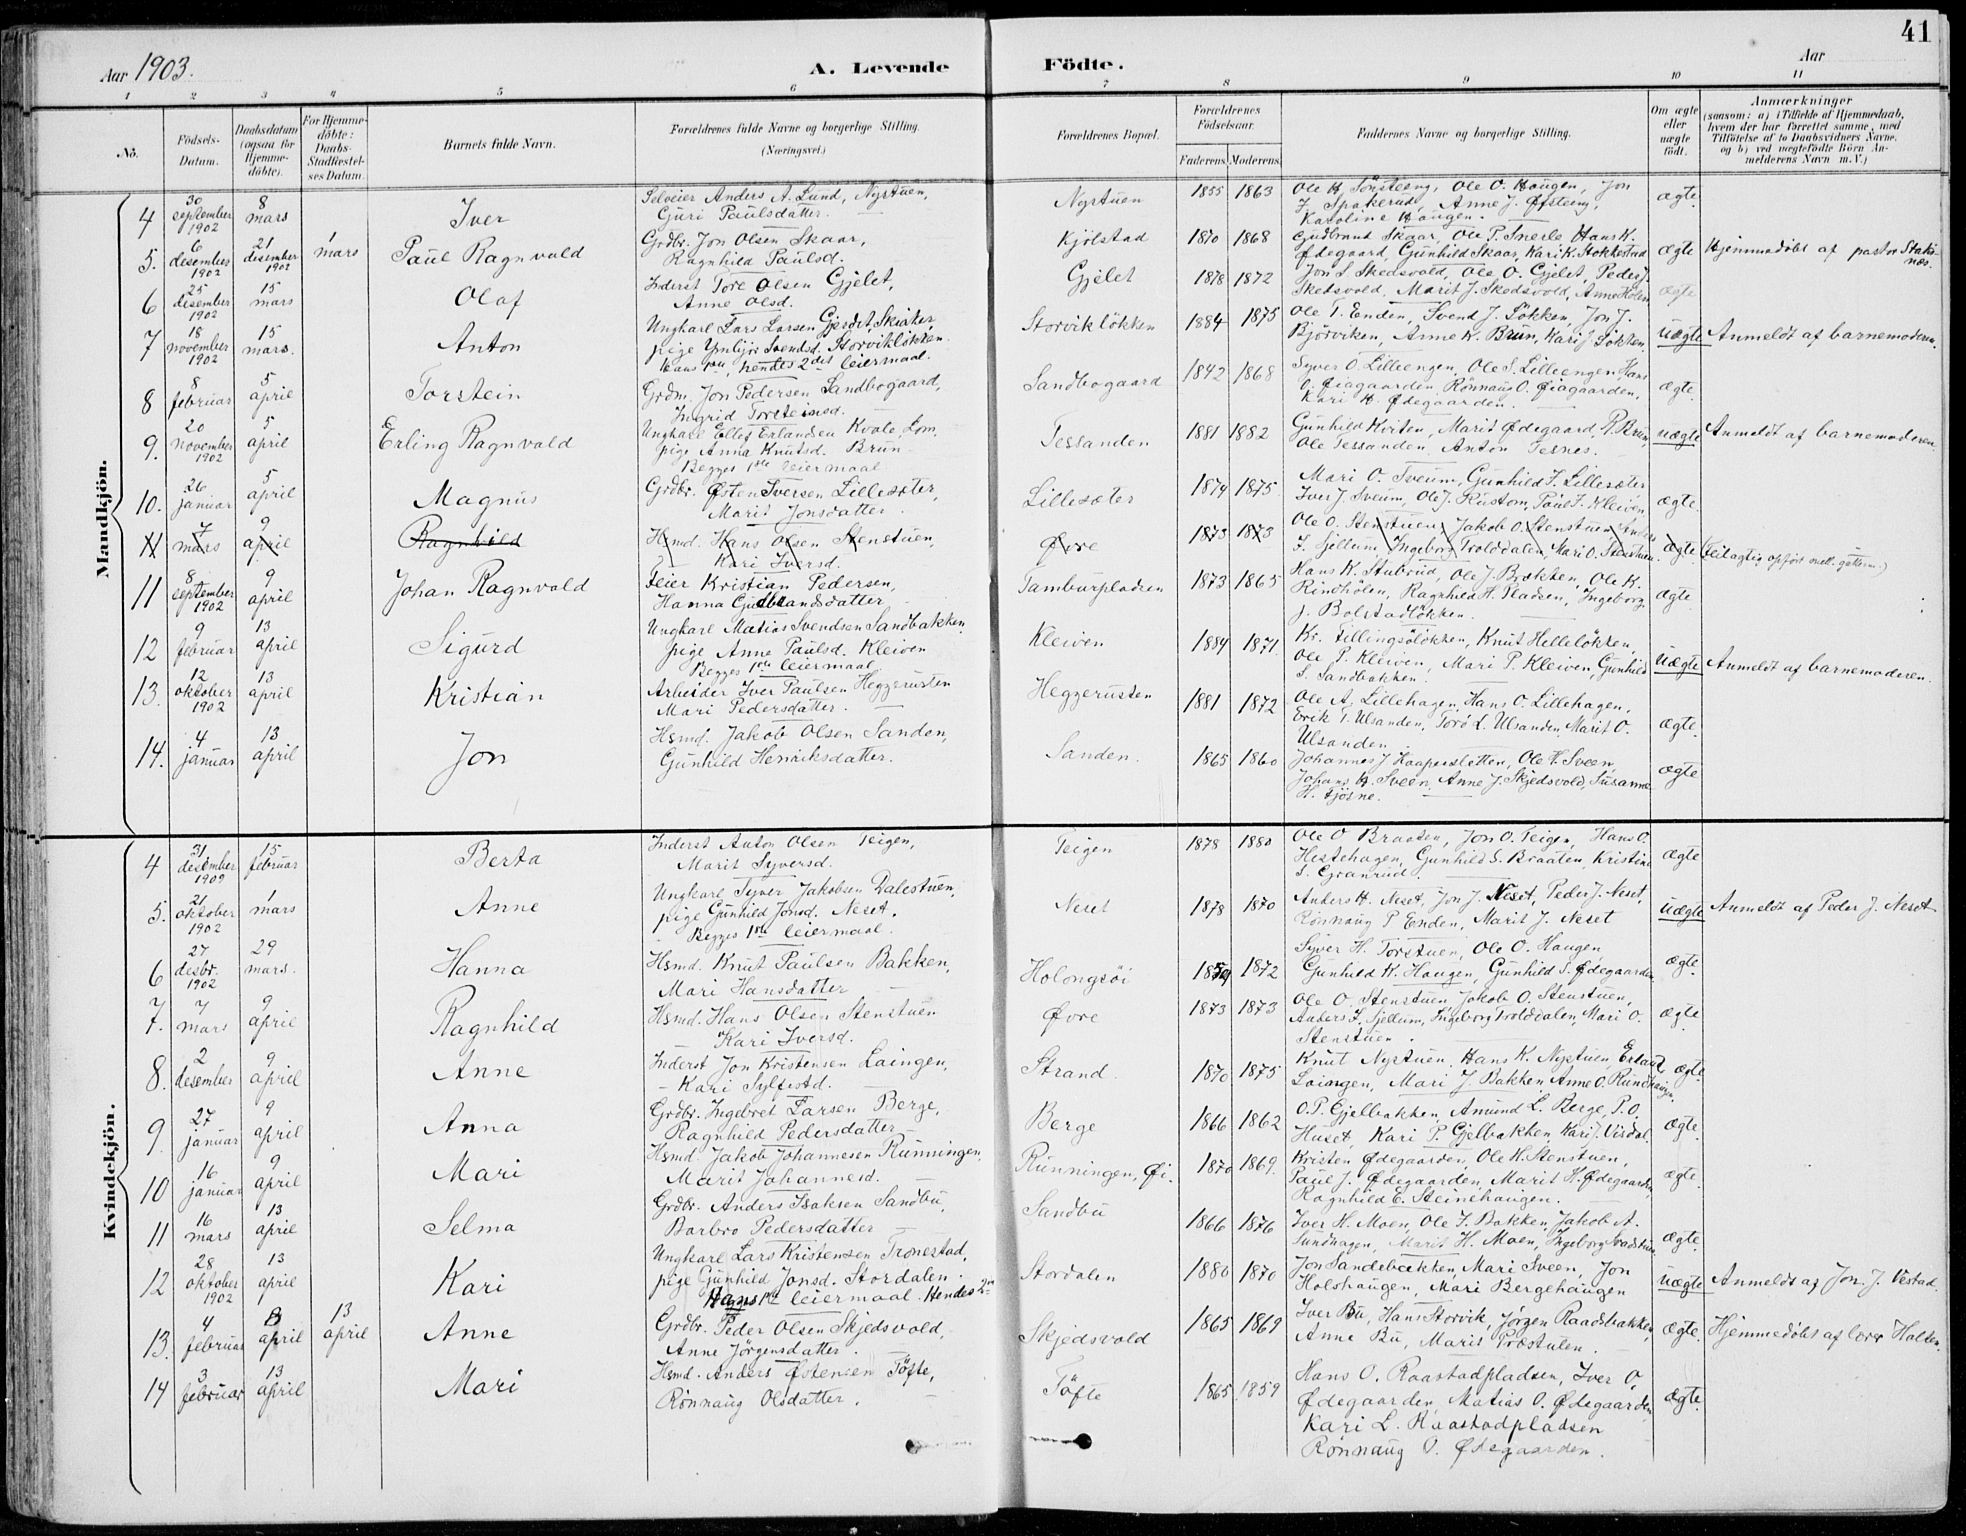 41
Aar 1903.
A. Levende
Födte.
Aar
1 2 3 4 5 6 7 8 9 10 11
No.
Födsels-Datum.
Daabsdatum (ogsaa for Hjemme-döbte).
For Hjemme-döbte: Daabs-Stadfæstel-ses Datum.
Barnets fulde Navn.
Forældrenes fulde Navne og borgerlige Stilling.
(Næringsvei.)
Forældrenes Bopæl.
Forældrenes Födselsaar.
Faderens. Moderens.
Faddernes Navne og borgerlige Stilling.
Om ægte eller uægte födt.
Anmærkninger
(saasom: a) i Tilfælde af Hjemmedaab,
hvem der har forrettet samme, med
Tilföielse af to Daabsvidners Navne,
og b) ved uægtefödte Börn An-
melderens Navn m. V.)
Mandkjön.
4 30 september 1902 8 mars Iver Selveier Anders A. Lund, Nystuen, Guri Paulsdatter. Nystuen 1855 1863 Ole H. Tönsteeng, Ole O. Haugen, Jon J. Spakerud, Anne J. Öfsteeng, Karoline Haugen. ægte.
5. 6 desember 1902 21 desember 1902 1 mars Paul Ragnvald Grdbr. Jon Olsen Skaar, Ragnhild Paulsd. Kjölstad 1870 1868 Gudbrand Skaar, Ole P. Snerle, Hans K. Ødegaard, Gunhild Skaar, Kari K. Stokkestad ægte Hjemmedöbt af pastor Staksnæs.
6 25 desember 1902 15 mars Olaf Inderst Tore Olsen Gjelet, Anne Olsd. Gjelet 1878 1872 Jon S. Skedsvold, Ole O. Gjelet, Peder J. Skedsvold, Marit J. Skedsvold, Anne Holen ægte
7 18 november 1902 15 mars. Anton Ungkarl Lars Larsen Gjerdet, Skiaker, pige Ynbjör Svendsd. Storviklökken. Hans 1ste, hendes 2det leiermaal. Storviklökken 1884 1875 Ole T. Enden, Svend J. Lökken, Jon J. Björviken, Anne K. Brun, Kari J. Lökken. uægte Anmeldt af barnemoderen.
8 8 februar 5 april Torstein Grdm. Jon Pedersen Sandbogaard, Ingrid Torsteinsd. Sandbogaard 1842 1868 Syver O. Lilleengen, Ole S. Lilleengen, Hans O. Øiagaarden, Rönnaug O. Øiagaarden, Kari H. Ødegaarden. ægte.
9. 20 november 1902 5 april Erling Ragnvald Ungkarl Ellef Erlandsen Kvale, Lom, pige Anna Knutsd. Brun Begges 1ste leiermaal Tessanden 1881 1882 Gunhild Kirton, Marit Ødegaard, R. Brun, Ole Tessanden, Anton Tesnes. uægte Anmeldt af barnemoderen.
10. 26 januar 5 april Magnus Grdbr. Østen Iversen Lillesæter, Marit Jonsdatter. Lillesæter 1874 1875. Mari O. Sveum, Gunhild J. Lillesæter, Iver J. Sveum, Ole J. Rustom, Paul J. Kleiven ægte.
11 7 mars 9 april Ragnhild Hsmd. Hans Olsen Stenstuen, Kari Iversd. Øvre 1873 1873 Ole O. Stenstuen, Jakob O. Stenstuen, Anders J. Sjellum, Ingeborg Trolddalen, Mari O. Stenstuen. ægte (Feilagtig opfört mell. gutterne.)
11 8 september 1902 9 april Johan Ragnvald Feier Kristian Pedersen, Hanna Gudbrandsdatter Tamburpladsen 1873 1865 Hans K. Stubrud, Ole J. Brækken, Ole K. Rindhölen, Ragnhild H. Pladsen, Ingeborg J. Bolstadlökken. ægte
12 9 februar 13 april Sigurd Ungkarl Matias Svendsen Sandbakken, pige Anne Paulsd. Kleiven Begges 1ste leiermaal Kleiven 1884 1871. Kr. Fillingsölökken, Knut Hellelökken, Ole P. Kleiven, Mari P. Kleiven, Gunhild S. Sandbakken. uægte Anmeldt af barnemoderen.
13. 12 oktober 1902 13 april Kristian Arbeider Iver Paulsen Heggerusten Mari Pedersdatter. Heggerusten 1881 1872 Ole A. Lillehagen, Hans O. Lillehagen, Erik T. Ulsanden, Torö L. Ulsanden, Marit O. Ulsanden ægte.
14. 4 januar 13 april Jon Hsmd. Jakob Olsen Sanden, Gunhild Henriksdatter. Sanden. 1865 1860 Johannes J. Kaaperslætten, Ole H. Sveen, Johans H. Sveen, Anne J. Skjedsvold, Susanne H. Fjösne. ægte
Kvindekjön.
4 31 desember 1902 15 februar Berta Inderst Anton Olsen Teigen, Marit Syversd. Teigen 1878 1880 Ole O Braaten, Jon O. Teigen, Hans O. Hestehagen, Gunhild S. Braaten, Kristine S. Granrud. ægte
5. 21 oktober 1902 1 mars Anne Ungkarl Syver Jakobsen Dalestuen, pige Gunhild Jonsd. Neset. Begges 1ste leiermaal. Neset 1878 1870 Anders H. Neset, Jon J. Neset, Peder J. Neset, Rönnaug P. Enden, Marit J. Neset uægte Anmeldt af Peder J. Neset
6 27 desbr. 1902 29 mars. Hanna Hsmd. Knut Paulsen Bakken, Mari Hansdatter Holongsöi 1859 1872 Syver H. Torstuen, Ole O. Haugen, Gunhild K. Haugen, Gunhild S. Ødegaarden. ægte.
7. 7 mars 9 april Ragnhild Hsmd. Hans Olsen Stenstuen Kari Iversd. Øvre 1873 1873 Ole O. Stenstuen, Jakob O. Stenstuen, Anders J. Sjellum, Ingeborg Trolddalen, Mari O. Stenstuen. ægte.
8. 2 desember 9 april Anne Inderst Jon Kristensen Laingen, Kari Sylfestd. Strand. 1870 1875 Knut Nystuen, Hans K. Nystuen, Erland Laingen, Mari J. Bakken, Anne O. Rundhaugen. ægte.
9. 27 januar 9 april Anna Grdbr. Ingebret Larsen Berge, Ragnhild Pedersdatter Berge 1866 1862 O. P. Gjelbakken, Amund L. Berge, P. O. Huset, Kari P. Gjelbakken, Kari J. Visdal. ægte.
10 16 januar 9 april Mari Hsmd. Jakob Johannesen Runningen, Marit Johannesd. Runningen, Öi. 1870 1869. Kristen Ødegaarden, Ole H. Stenstuen, Paul J. Ødegaarden, Marit H. Ødegaarden, Ragnhild E. Steinehaugen. ægte.
11 16 mars 13 april Selma Grdbr. Anders Isaksen Sandbu, Barbro Pedersdatter Sandbu 1866 1876 Iver H. Moen, Ole J. Bakken, Jakob A. Sundhagen, Marit H. Moen, Ingeborg Svadstuen. ægte.
12 28 oktober 1902 13 april Kari Ungkarl Lars Kristensen Tronestad, pige Gunhild Jonsd. Stordalen. Hans 1ste leiermaal. Hendes 2net Stordalen 1880 1870 Jon Sandebækken, Mari Sveen, Jon Holshaugen, Mari Bergehaugen uægte Anmeldt af Jon J. Vestad.
13. 4 februar 8 april 13 april Anne Grdbr. Peder Olsen Skjedsvold, Anne Jörgensdatter. Skjedsvold 1865 1869 Iver Bu, Hans Storvik, Jörgen Raadsbakken, Anne Bu, Marit Prostulen. ægte. Hjemmedöbt af lærer Holten.
14 3 februar 13 april Mari Hsmd. Anders Østensen Töfte, Rönnaug Olsdatter. Töfte 1865 1859 Hans O. Raastadpladsen, Iver O. Ødegaarden, Matias O. Ødegaarden, Kari L. Raastadpladsen Rönnaug O. Ødegaarden. ægte.